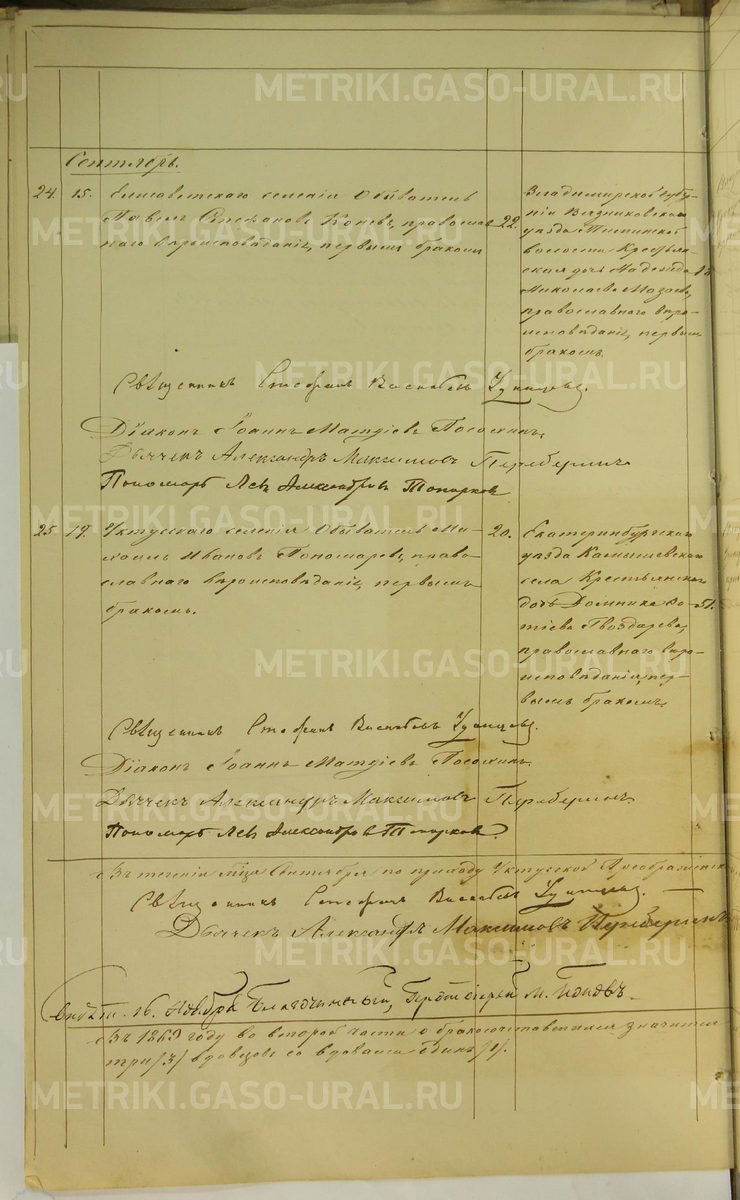 METRIKI.GASO-URAL.RU
Сентябрь.
24. 15. Елисаветскаго селенія Обыватель
Павелъ Стефановъ Коневъ, православ-
наго вѣроисповѣданія, первымъ бракомъ
22.
Владимирской Губер-
ніи Вязниковскаго
уѣзда
волости Крестьян-
ская дочь Надежда
Николаева Мазаева,
православнаго вѣро-
исповѣданія, первымъ
бракомъ.
18
Священникъ Стефанъ Удинцевъ.
Діаконъ Іоаннъ Матѳіевъ
Дьячекъ Александръ Максимовъ Переберинъ
Пономарь Левъ Александровъ Топорковъ
25. 19. Уктусскаго селенія Обыватель Ми-
хаилъ Ивановъ Пономаревъ, право-
славнаго вѣроисповѣданія, первымъ
бракомъ.
20.
Екатеринбургскаго
уѣзда Камышевскаго
села Крестьянская
дочь Домника
Гвоздарева,
православнаго вѣро-
исповѣданія, пер-
вымъ бракомъ
Священникъ Стефанъ Удинцевъ.
Діаконъ Іоаннъ Матѳіевъ
Дьячекъ Александръ Максимовъ Переберинъ
Пономарь Левъ Александровъ Топорковъ.
Въ теченіи по приходу Уктусской Преображенск
Священникъ Стефанъ Удинцевъ.
Дьячекъ Александръ Максимовъ Переберинъ
16. Ноября Благочинный, М. Поповъ.
Въ 1869 году во второй части о бракосочетавшихся значится
три /3/ вдовцовъ со вдовами одинъ /1/.